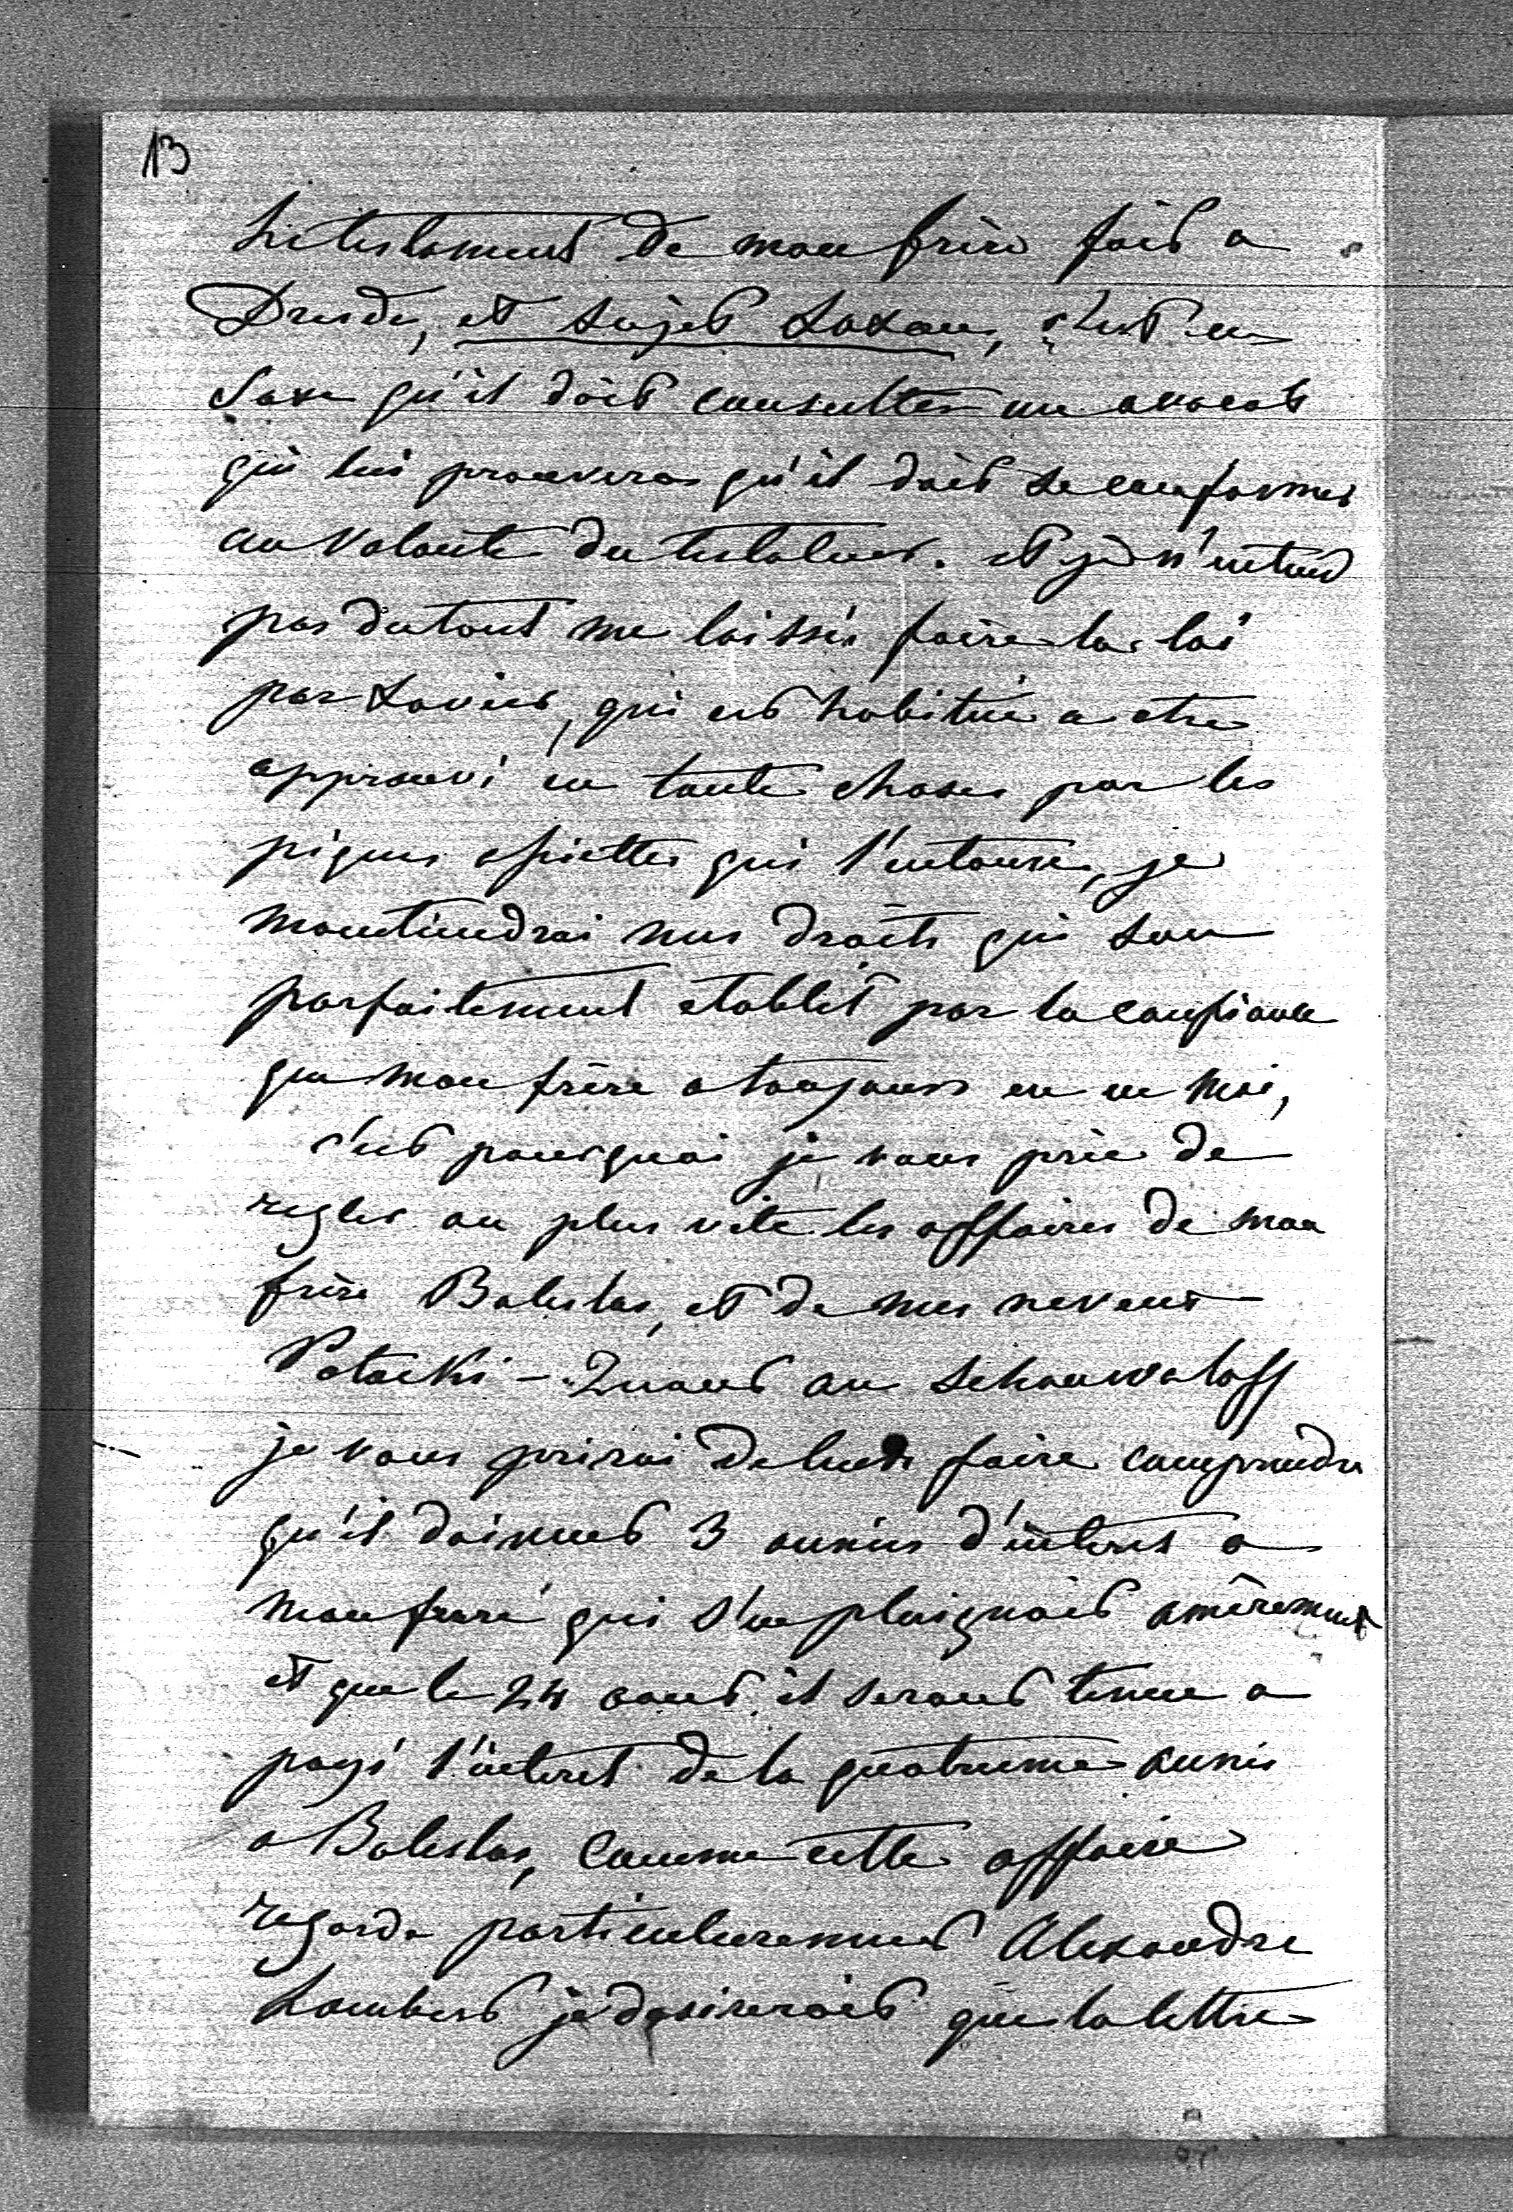 13
Le testament de mon frère fait a
Dresde, et sujet Saxon, c'est en
Saxe qu'il doit consulter un avocat
qui lui prouvera qu'il doit se conformer
au volonte du testateur. et je n'entend
pas du tout me laisser faire la loi
par Xavier, qui est habitué a etre
approuvé en toute choses par les
piques assiettes qui l'entoure, je
maintiendrai mes droits qui son
parfaitement etablit par la confiance
que mon frère a toujours eu en moi,
c'est pourquoi je vous prie de
regler au plus vite les affaires de mon
frère Boleslas, et de mes neveux
Potocki - Quand au Schouvaloff
je vous prirai de leur faire comprendre
qu'il doivent 3 années d'interet a
mon frère qui s'en plaignait amèrement
et que le 24 aout il seront tenue a
payé l'interet de la quatrieme année
a Boleslas, Comme cette affaire
regarde particulierement Alexandre
Lambert je desirerait que la lettre